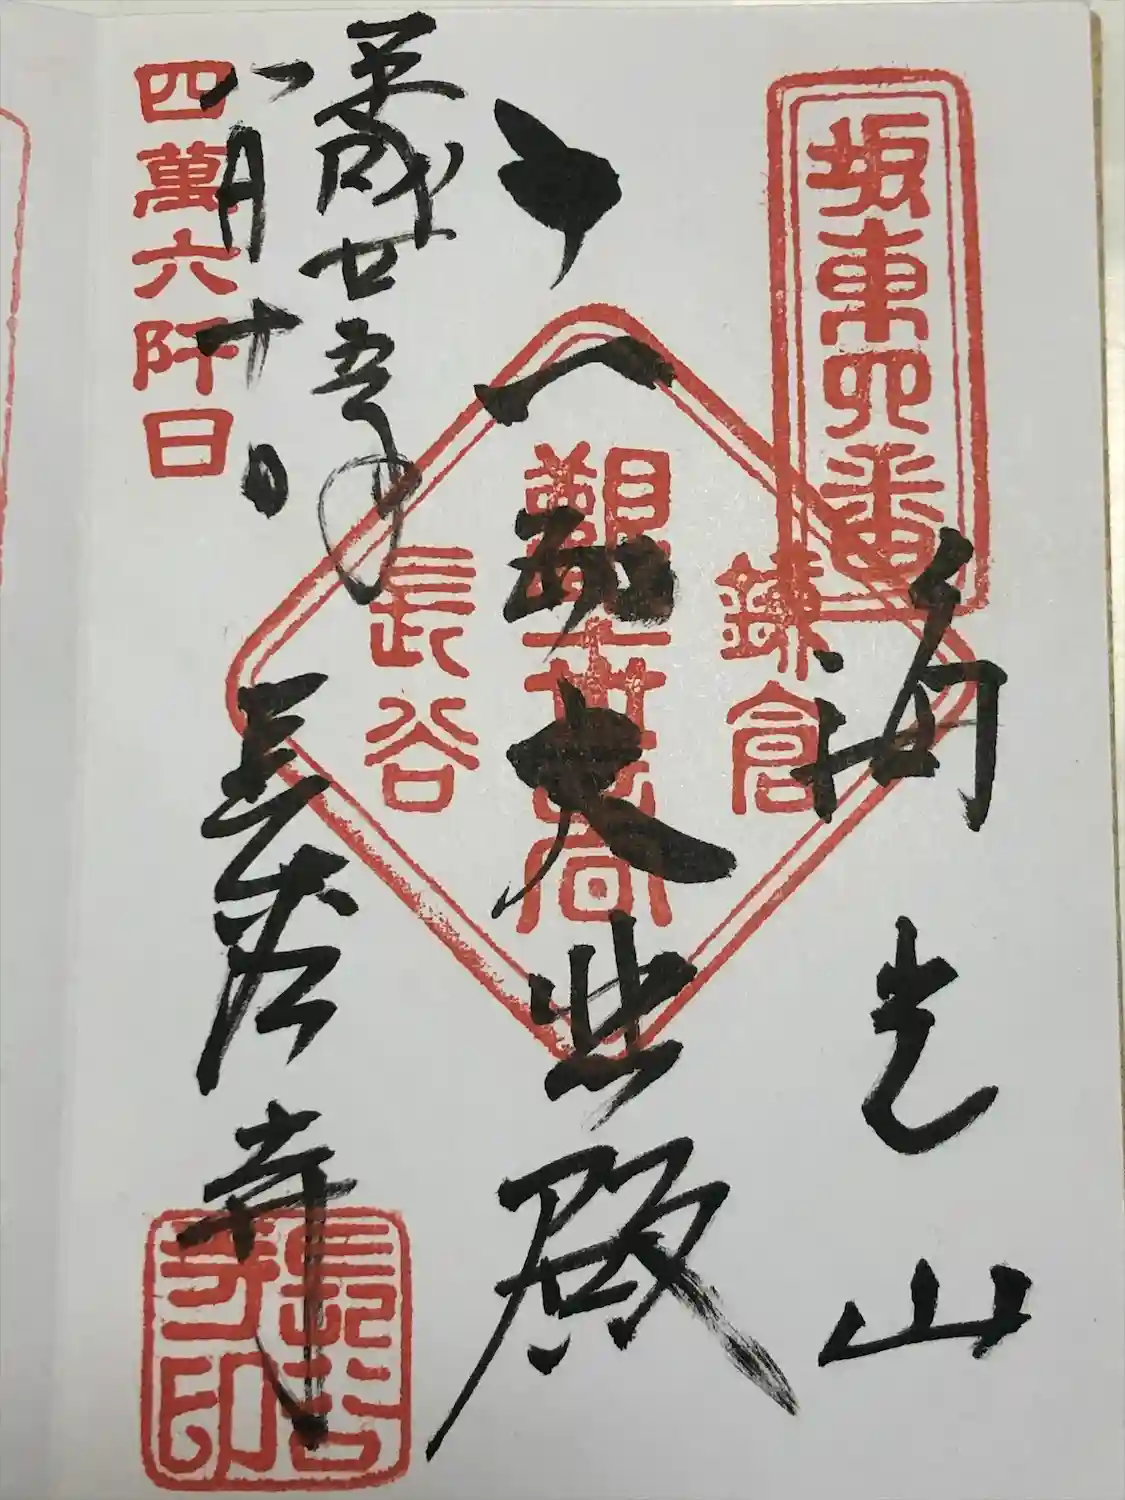 坂東四番
海光山
十一面大悲殿
鎌倉
觀世音
長谷
平成廿五年
八月十日
四萬六阡日
長谷寺
長谷寺印